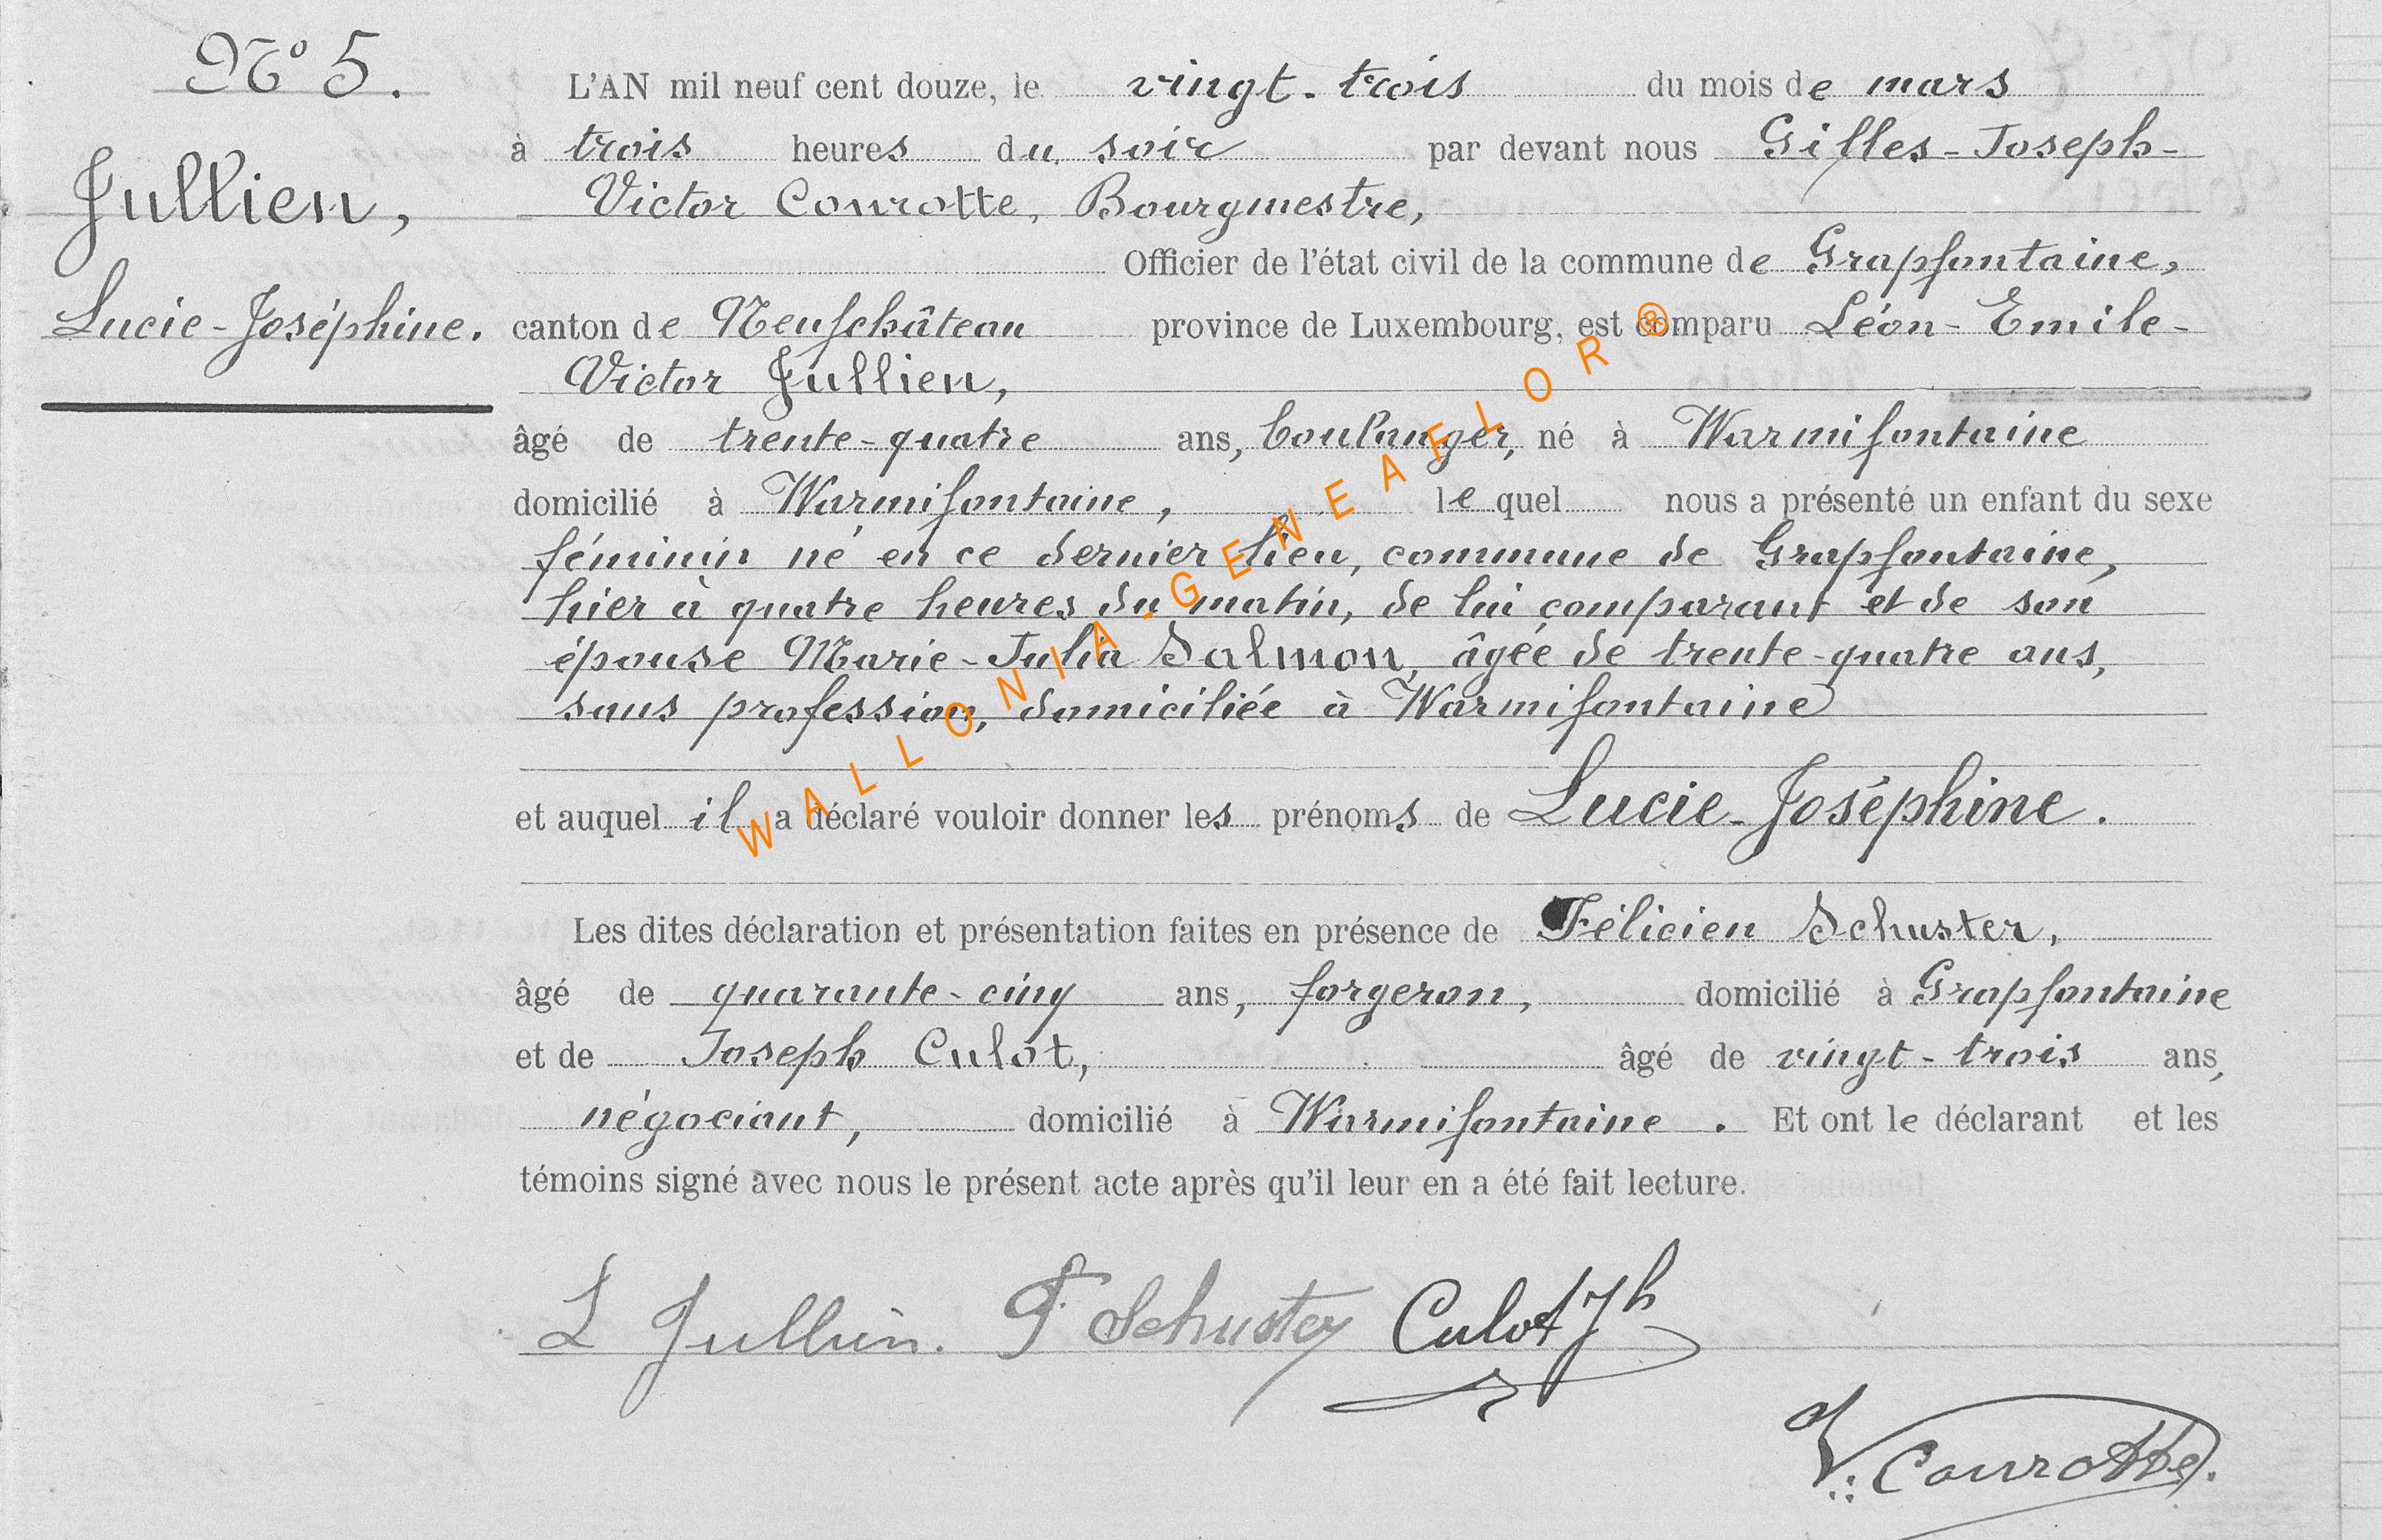 N° 5.
Jullien,
Lucie-Joséphine.
L'AN mil neuf cent douze, le vingt-trois du mois de mars
à trois heures du soir par devant nous Gilles-Joseph-
Victor Courotte, Bourgmestre,
Officier de l'état civil de la commune de Grapfontaine,
canton de Neufchâteau province de Luxembourg, est comparu Léon-Emile-
Victor Jullien,
âgé de trente-quatre ans, boulanger, né à Warmifontaine
domicilié à Warmifontaine, lequel nous a présenté un enfant du sexe
féminin né en ce dernier lieu, commune de Grapfontaine,
hier à quatre heures du matin, de lui comparant et de son
épouse Marie-Julia Salmon, âgée de trente-quatre ans,
sans profession, domiciliée à Warmifontaine
et auquel il a déclaré vouloir donner les prénoms de Lucie-Joséphine.
Les dites déclaration et présentation faites en présence de Félicien Schuster,
âgé de quarante-cinq ans, forgeron, domicilié à Grapfontaine
et de Joseph Culot, âgé de vingt-trois ans,
négociant, domicilié à Warmifontaine. Et ont le déclarant et les
témoins signé avec nous le présent acte après qu'il leur en a été fait lecture.
L Jullien. F Schuster Culot Jh
V. Courotte.
WALLONIA-GENEAFLOR ®